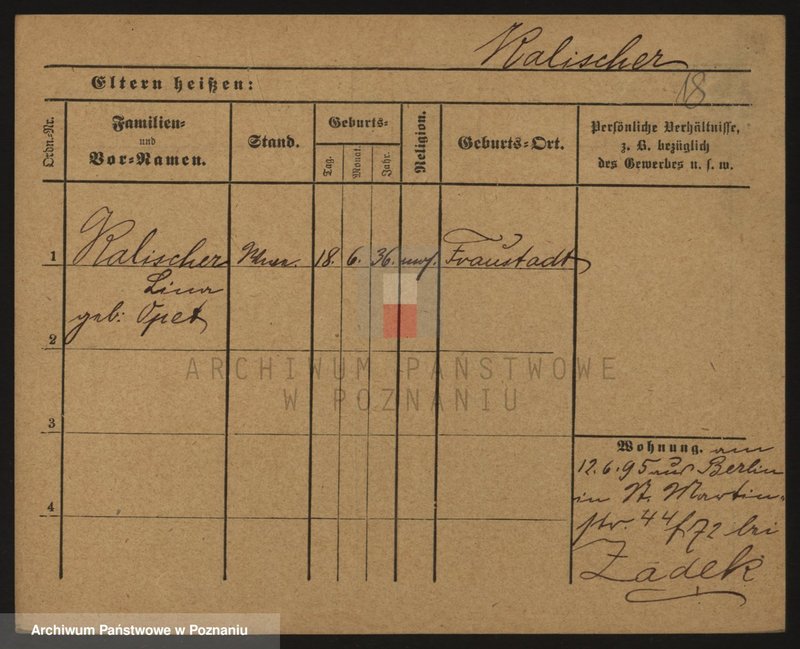 Kalischer
18
Eltern heißen:
Ordn.-Nr.
Familien-
und
Vor-Namen.
Stand.
Geburts-
Tag.
Monat.
Jahr.
Religion.
Geburts-Ort.
Persönliche Verhältnisse,
z. B. bezüglich
des Gewerbes u. s. w.
1 Kalischer 18. 6. 36. mos. Fraustadt
Lina
geb: Opet
2
3
4
Wohnung. am
12.6.95 aus Berlin
in St. Martin-
str. 44/72 bei
Zadek
ARCHIWUM PAŃSTWOWE
W POZNANIU
Archiwum Państwowe w Poznaniu